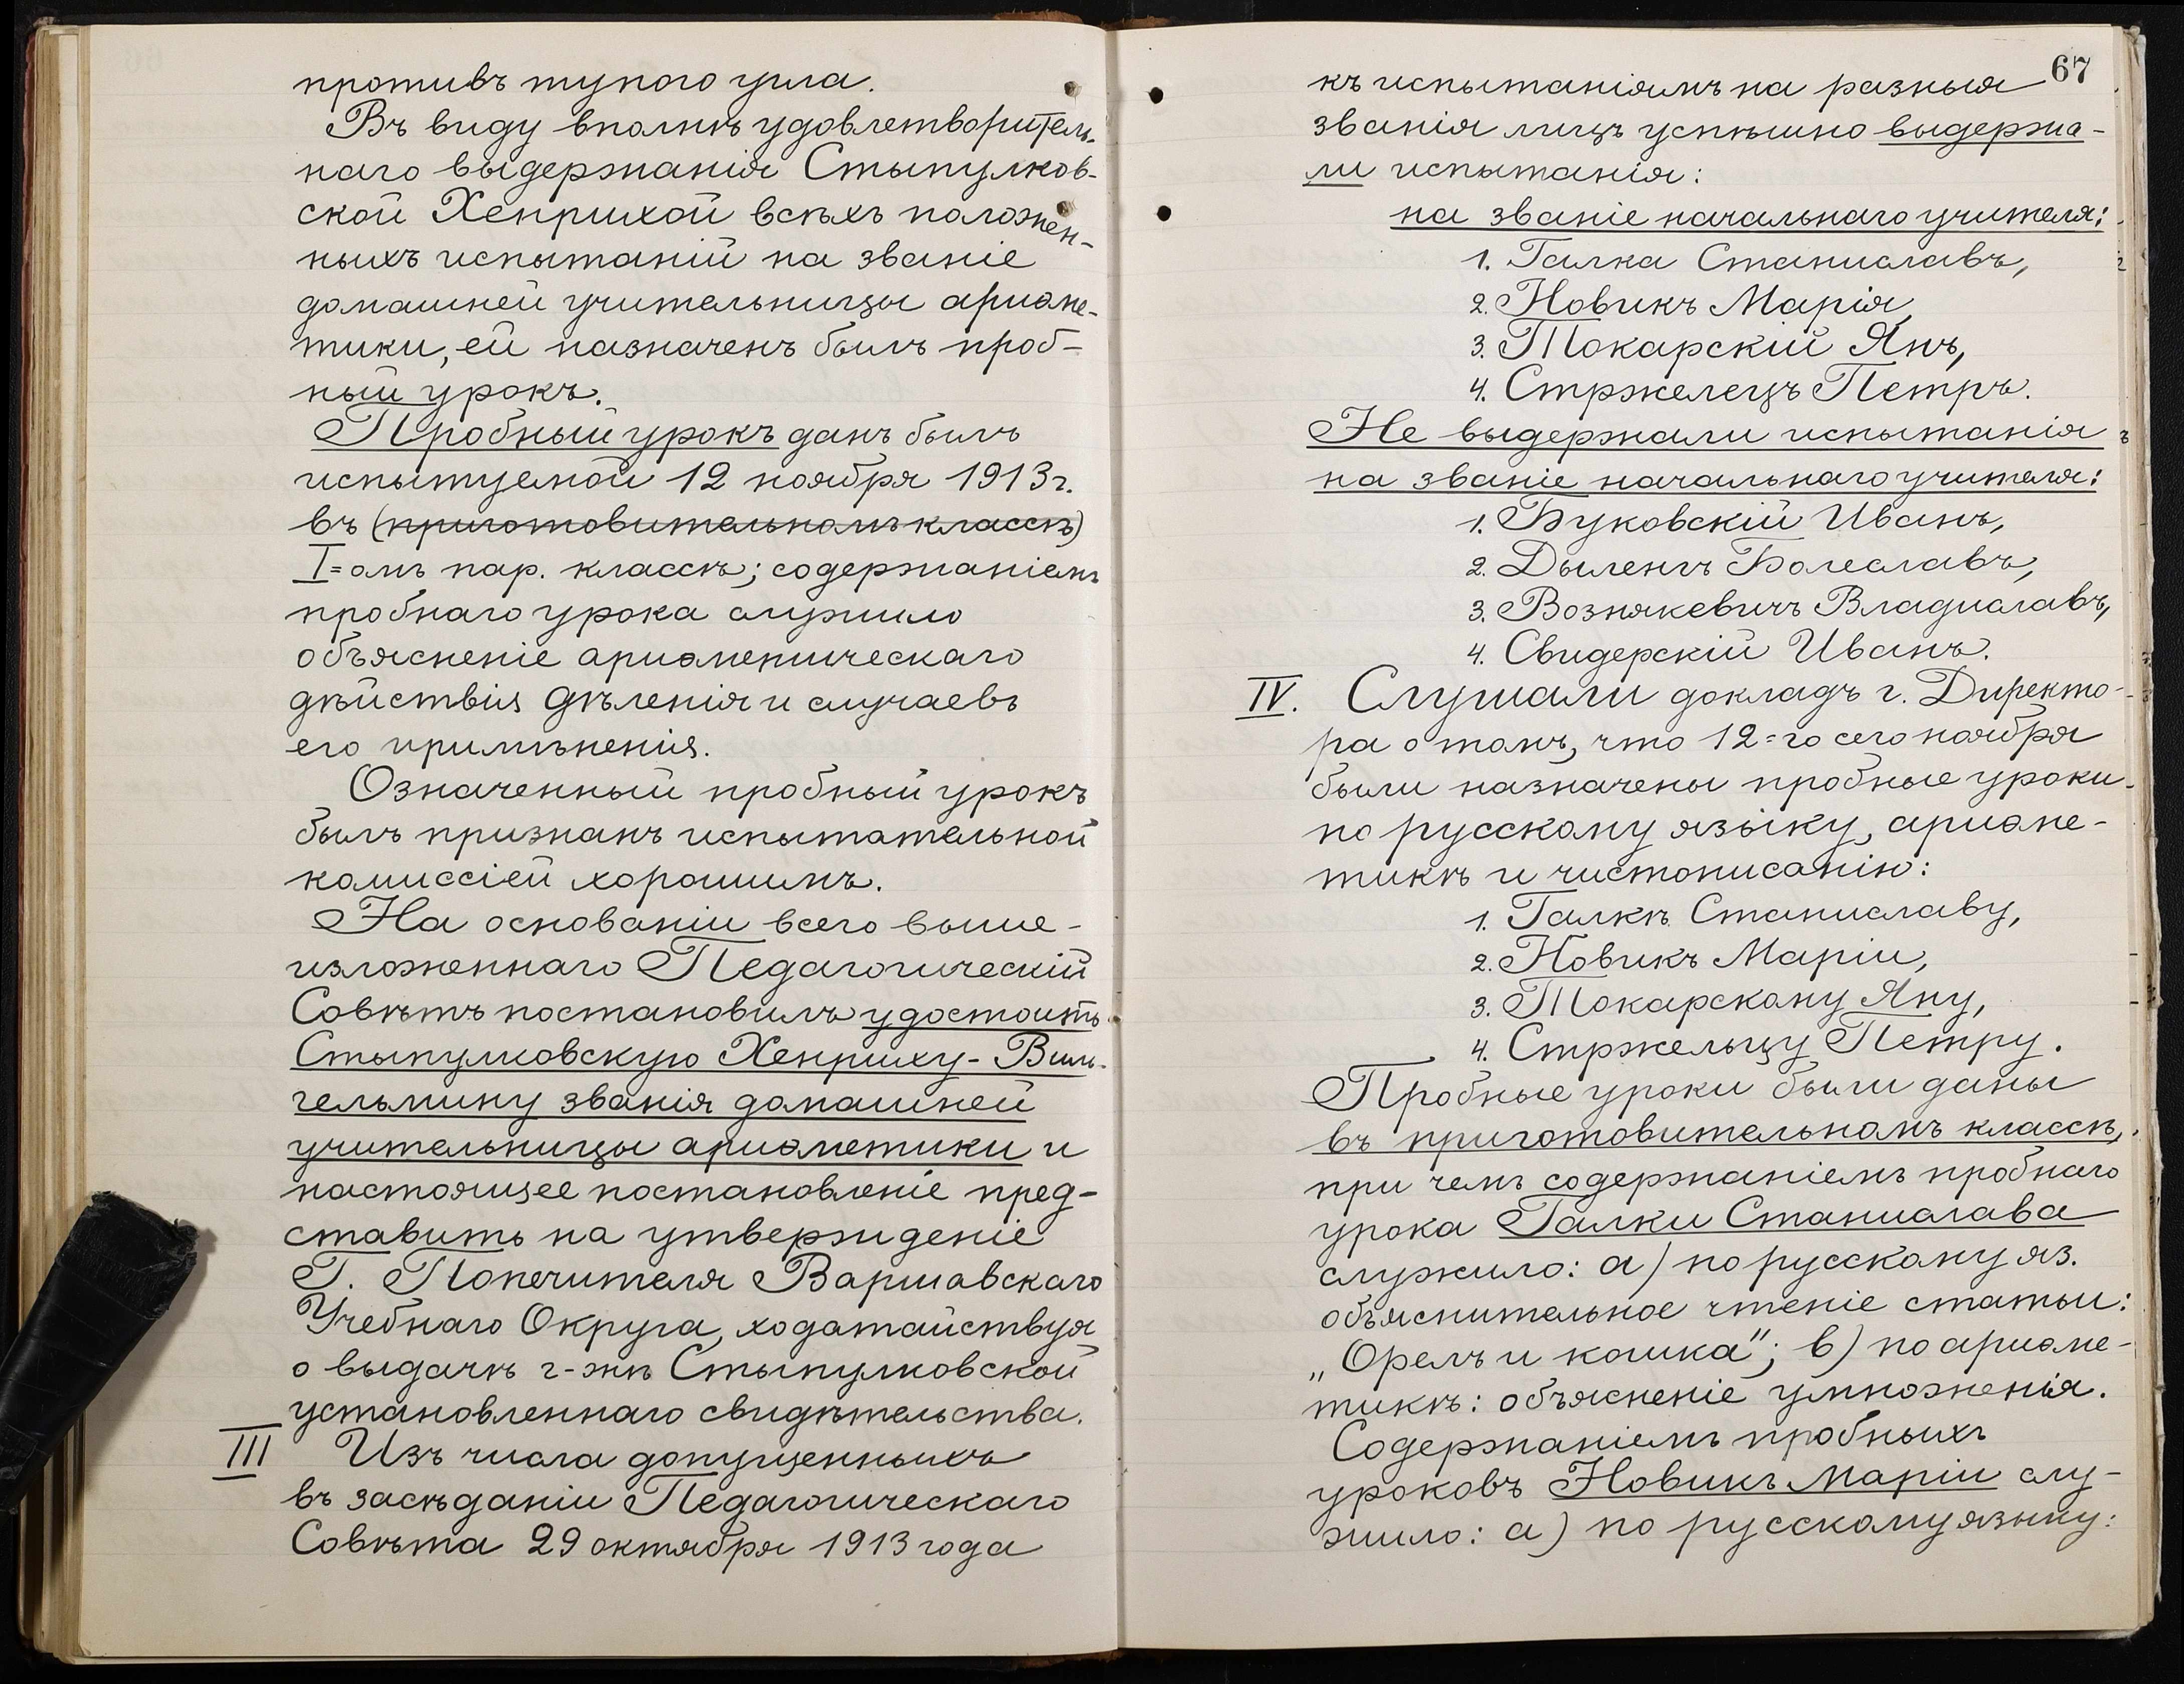 противъ тупого угла.
Въ виду вполнѣ удовлетворитель-
наго выдержанія Стыпулков-
ской Хенрихой всѣхъ положен-
ныхъ испытаній на званіе
домашней учительницы ариѳме-
тики, ей назначенъ былъ проб-
ный урокъ.
Пробный урокъ данъ былъ
испытуемой 12 ноября 1913 г.
въ (приготовительномъ классѣ)
I=омъ пар. классѣ; содержаніемъ
пробнаго урока служило
объясненіе ариѳметическаго
дѣйствія дѣленія и случаевъ
его примѣненія.
Означенный пробный урокъ
былъ признанъ испытательной
комиссіей хорошимъ.
На основаніи всего выше-
изложеннаго Педагогическій
Совѣтъ постановилъ удостоить
Стыпулковскую Хенриху-Виль-
гельмину званія домашней
учительницы ариѳметики и
настоящее постановленіе пред-
ставить на утвержденіе
Г. Попечителя Варшавскаго
Учебнаго Округа, ходатайствуя
о выдачѣ г-жѣ Стыпулковской
установленнаго свидѣтельства.
III Изъ числа допущенныхъ
въ засѣданіи Педагогическаго
Совѣта 29 октября 1913 года
67
къ испытаніямъ на разныя
званія лицъ успѣшно выдержа-
ли испытанія:
на званіе начальнаго учителя:
1. Галка Станиславъ,
2. Новикъ Марія,
3. Токарскій Янъ,
4. Стржелецъ Петръ.
Не выдержали испытанія
на званіе начальнаго учителя:
1. Буковскій Иванъ,
2. Дыленгъ Болеславъ,
3. Вознякевичъ Владиславъ,
4. Свидерскій Иванъ.
IV. Слушали докладъ г. Директо-
ра о томъ, что 12=го сего ноября
были назначены пробные уроки
по русскому языку, ариѳме-
тикѣ и чистописанію:
1. Галкѣ Станиславу,
2. Новикъ Маріи,
3. Токарскому Яну,
4. Стржельцу Петру.
Пробные уроки были даны
въ приготовительномъ классѣ,
при чемъ содержаніемъ пробнаго
урока Галки Станислава
служило: а) по русскому яз.
объяснительное чтеніе статьи:
„Орелъ и кошка"; в) по ариѳме-
тикѣ: объясненіе умноженія.
Содержаніемъ пробныхъ
уроковъ Новикъ Маріи слу-
жило: а) по русскому языку: